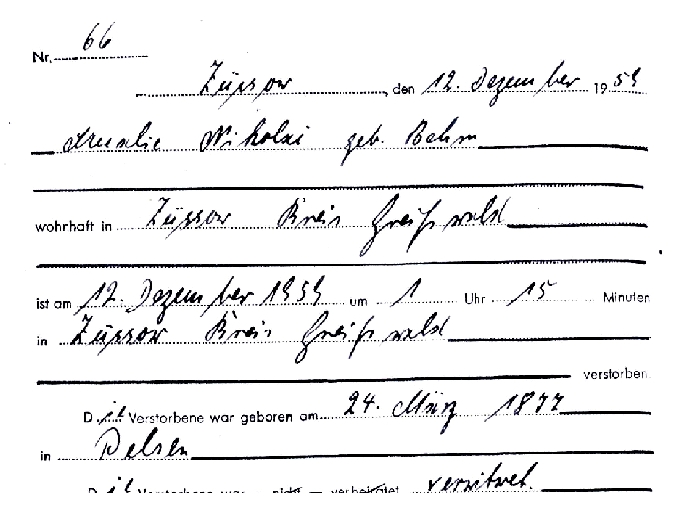 Nr. 66
Züssow, den 12. Dezember 1959
Amalie Nikolai geb. Behm
wohnhaft in Züssow Kreis Greifswald
ist am 12. Dezember 1959 um 1 Uhr 15 Minuten
in Züssow Kreis Greifswald
verstorben.
Die Verstorbene war geboren am 24. März 1877
in Delsen
Die Verstorbene war nicht — verheiratet verwitwet.